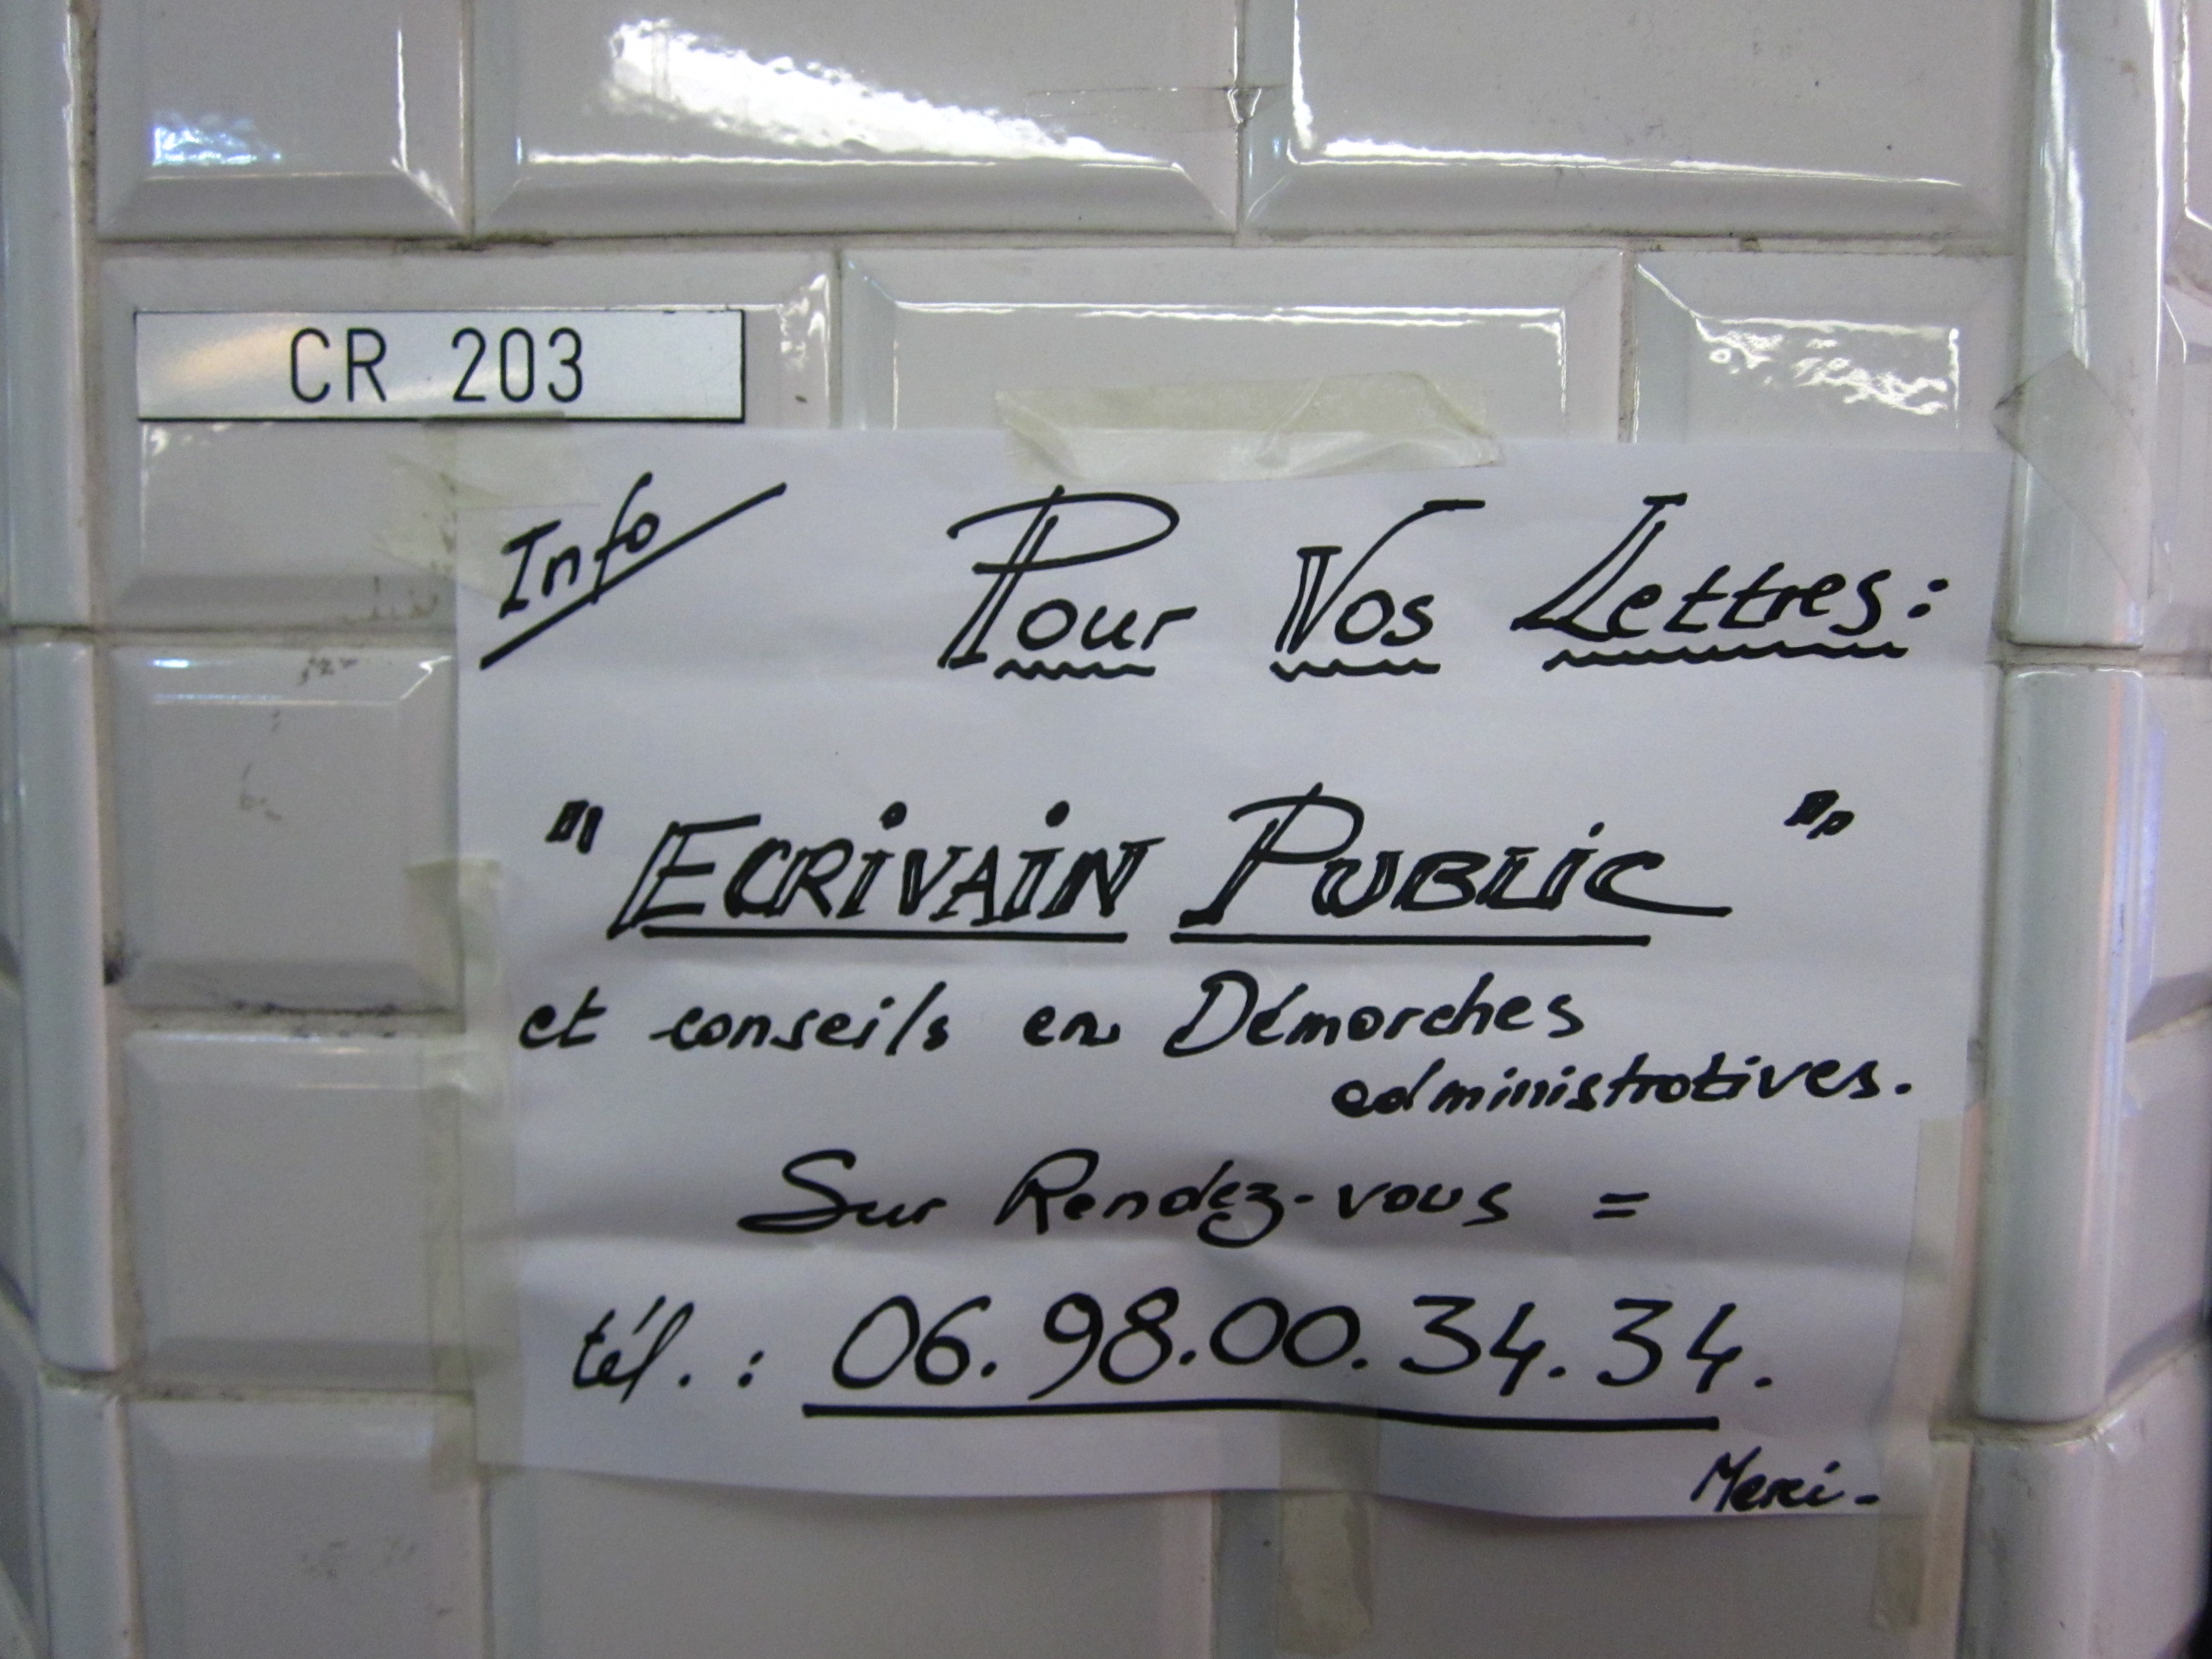 CR 203
Info Pour Vos Lettres:
"ECRiVAiN PUBLiC"
et conseils en Démarches
administratives.
Sur Rendez-vous =
tél. : 06.98.00.34.34.
Merci-